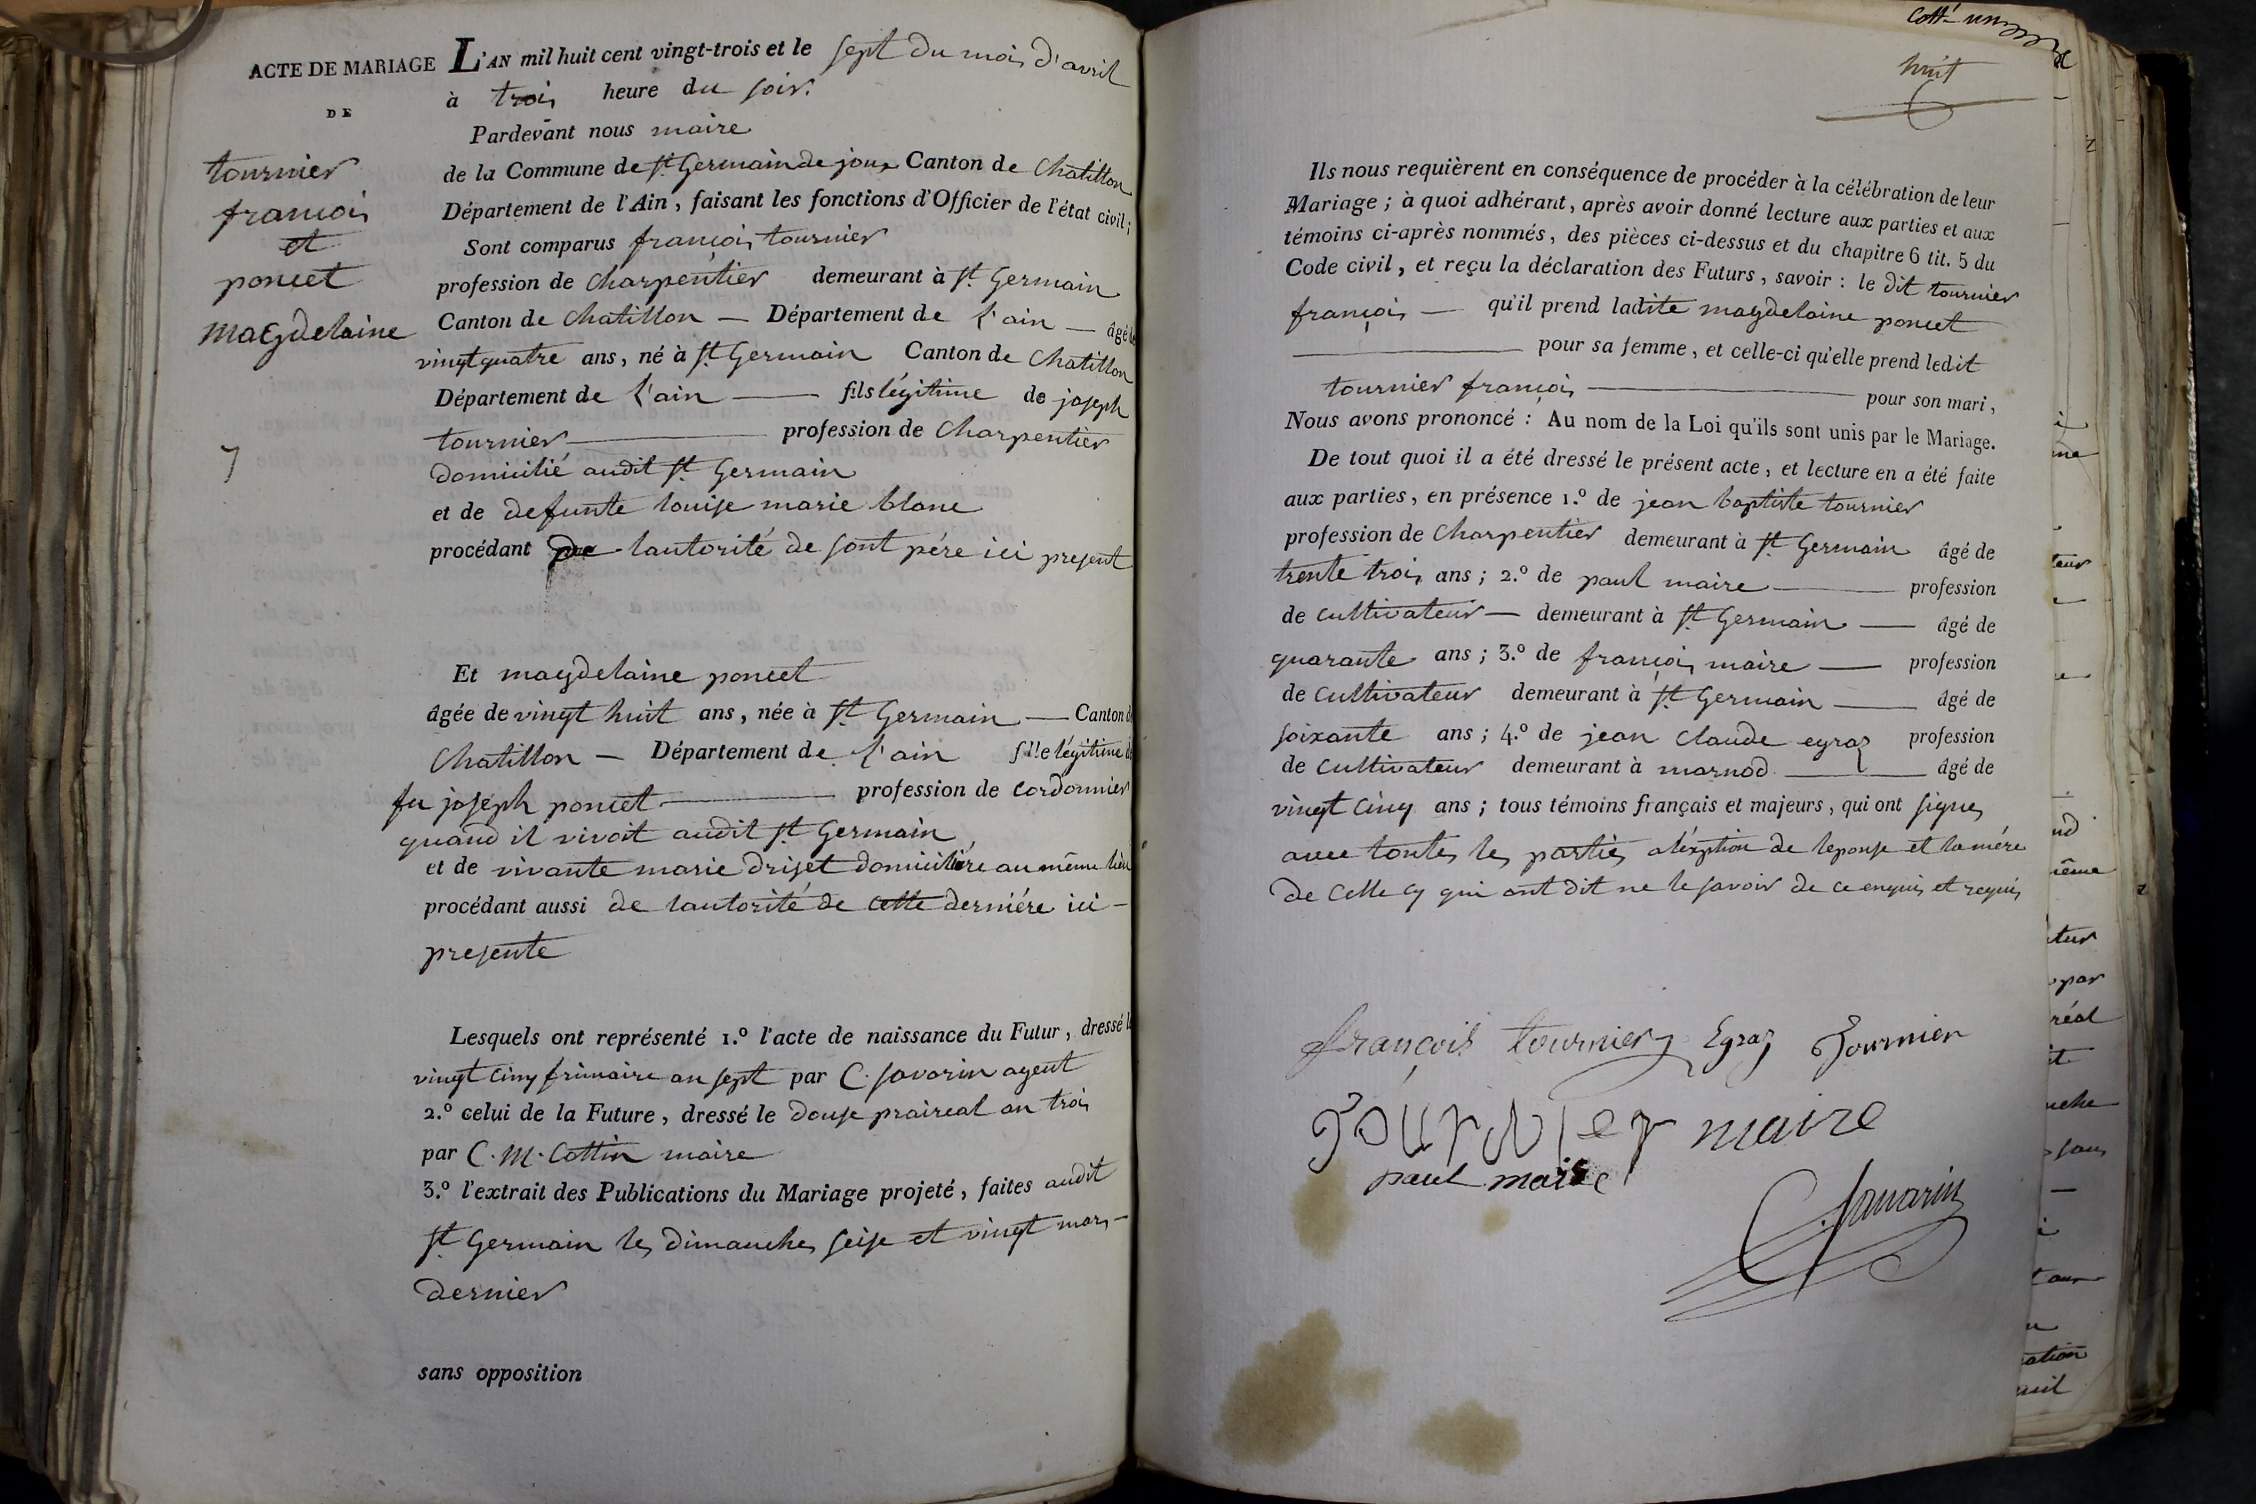 ACTE DE MARIAGE
DE
tournier
francois
et
poncet
magdelaine
7
L'AN mil huit cent vingt-trois et le sept du mois d'avril
à trois heure du soir.
Pardevant nous maire
de la Commune de st. Germain de joux Canton de Chatillon
Département de l'Ain, faisant les fonctions d'Officier de l'état civil;
Sont comparus françois tournier
profession de Charpentier demeurant à st. Germain
Canton de Chatillon — Département de l'ain — âgé de
vingt quatre ans, né à st. Germain Canton de Chatillon
Département de l'ain — fils légitime de joseph
tournier — profession de Charpentier
domicilié audit st. Germain
et de defunte louise marie blanc
procédant de lautorité de sont pére ici present
Et magdelaine poncet
âgée de vingt huit ans, née à st. Germain — Canton de
Chatillon — Département de l'ain fille légitime de
fu joseph poncet — profession de cordonnier
quand il vivoit audit st. Germain
et de vivante marie drijet domiciliére au même lieu
procédant aussi de lautorité de cette derniére ici -
presente
Lesquels ont représenté 1.º l'acte de naissance du Futur, dressé le
vingt cinq frimaire an sept par C. savarin agent
2.º celui de la Future, dressé le douse praireal an trois
par C. M. Cottin maire
3.º l'extrait des Publications du Mariage projeté, faites audit
st. Germain les dimanches seise et vingt mars -
dernier
sans opposition
huit
Ils nous requièrent en conséquence de procéder à la célébration de leur
Mariage; à quoi adhérant, après avoir donné lecture aux parties et aux
témoins ci-après nommés, des pièces ci-dessus et du chapitre 6 tit. 5 du
Code civil, et reçu la déclaration des Futurs, savoir: le dit tournier
françois — qu'il prend ladite magdelaine poncet
— pour sa femme, et celle-ci qu'elle prend ledit
tournier françois — pour son mari,
Nous avons prononcé: Au nom de la Loi qu'ils sont unis par le Mariage.
De tout quoi il a été dressé le présent acte, et lecture en a été faite
aux parties, en présence 1.º de jean baptiste tournier
profession de Charpentier demeurant à st. Germain âgé de
trente trois ans; 2.º de paul maire — profession
de cultivateur — demeurant à st. Germain — âgé de
quarante ans; 3.º de françois maire — profession
de cultivateur demeurant à st. Germain — âgé de
soixante ans; 4.º de jean Claude egraz profession
de cultivateur demeurant à marnod — âgé de
vingt cinq ans; tous témoins français et majeurs, qui ont signes
avec toutes les parties aléxption de leponse et la mére
de celle cy qui ont dit ne le savoir de ce enquis et requis
françois tournier Egraz Tournier
Tournier maire
paul maire
C. Savarin